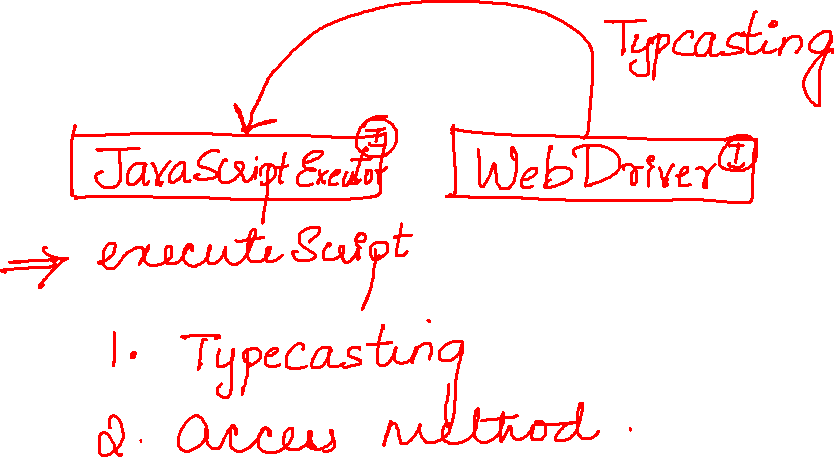 Typcasting
I
I
JavaScriptExecutor
WebDriver
⇒ executeScript
1. Typecasting
2. Access Method.